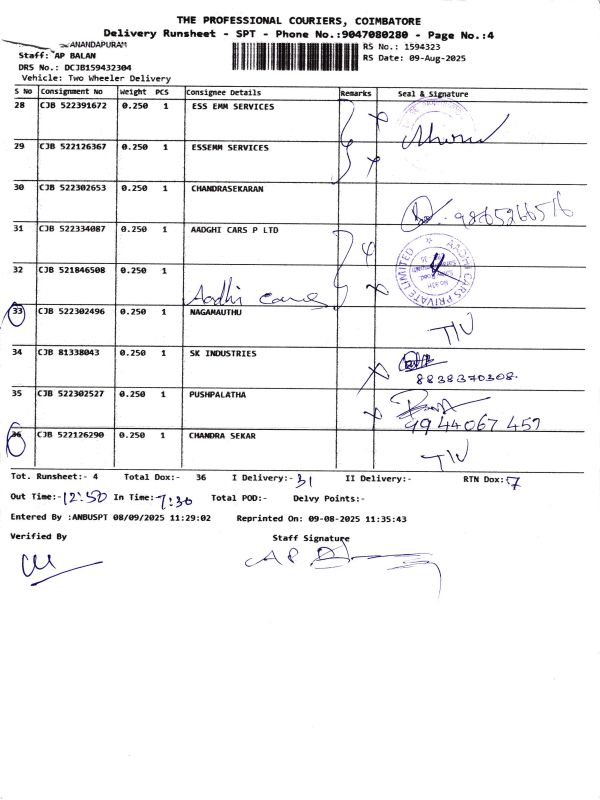 THE PROFESSIONAL COURIERS, COIMBATORE
Delivery Runsheet - SPT - Phone No.:9047080280 - Page No.:4
ANANDAPURAM
Staff: AP BALAN
RS No.: 1594323
DRS No.: DCJB159432304
RS Date: 09-Aug-2025
Vehicle: Two Wheeler Delivery
S No Consignment No Weight PCS Consignee Details Remarks Seal & Signature
28 CJB 522391672 0.250 1 ESS EMM SERVICES
29 CJB 522126367 0.250 1 ESSEMM SERVICES
30 CJB 522302653 0.250 1 CHANDRASEKARAN
9865266516
31 CJB 522334087 0.250 1 AADGHI CARS P LTD
AADHI CARS PRIVATE LIMITED
32 CJB 521846508 0.250 1
Aadhi cars
33 CJB 522302496 0.250 1 NAGAMAUTHU
TIV
34 CJB 81338043 0.250 1 SK INDUSTRIES
8838370308
35 CJB 522302527 0.250 1 PUSHPALATHA
9944067459
36 CJB 522126290 0.250 1 CHANDRA SEKAR
TIV
Tot. Runsheet:- 4 Total Dox:- 36 I Delivery:- 31 II Delivery:- RTN Dox:- 7
Out Time:- 12:50 In Time:- 7:30 Total POD:- Delvy Points:-
Entered By :ANBUSPT 08/09/2025 11:29:02 Reprinted On: 09-08-2025 11:35:43
Verified By Staff Signature